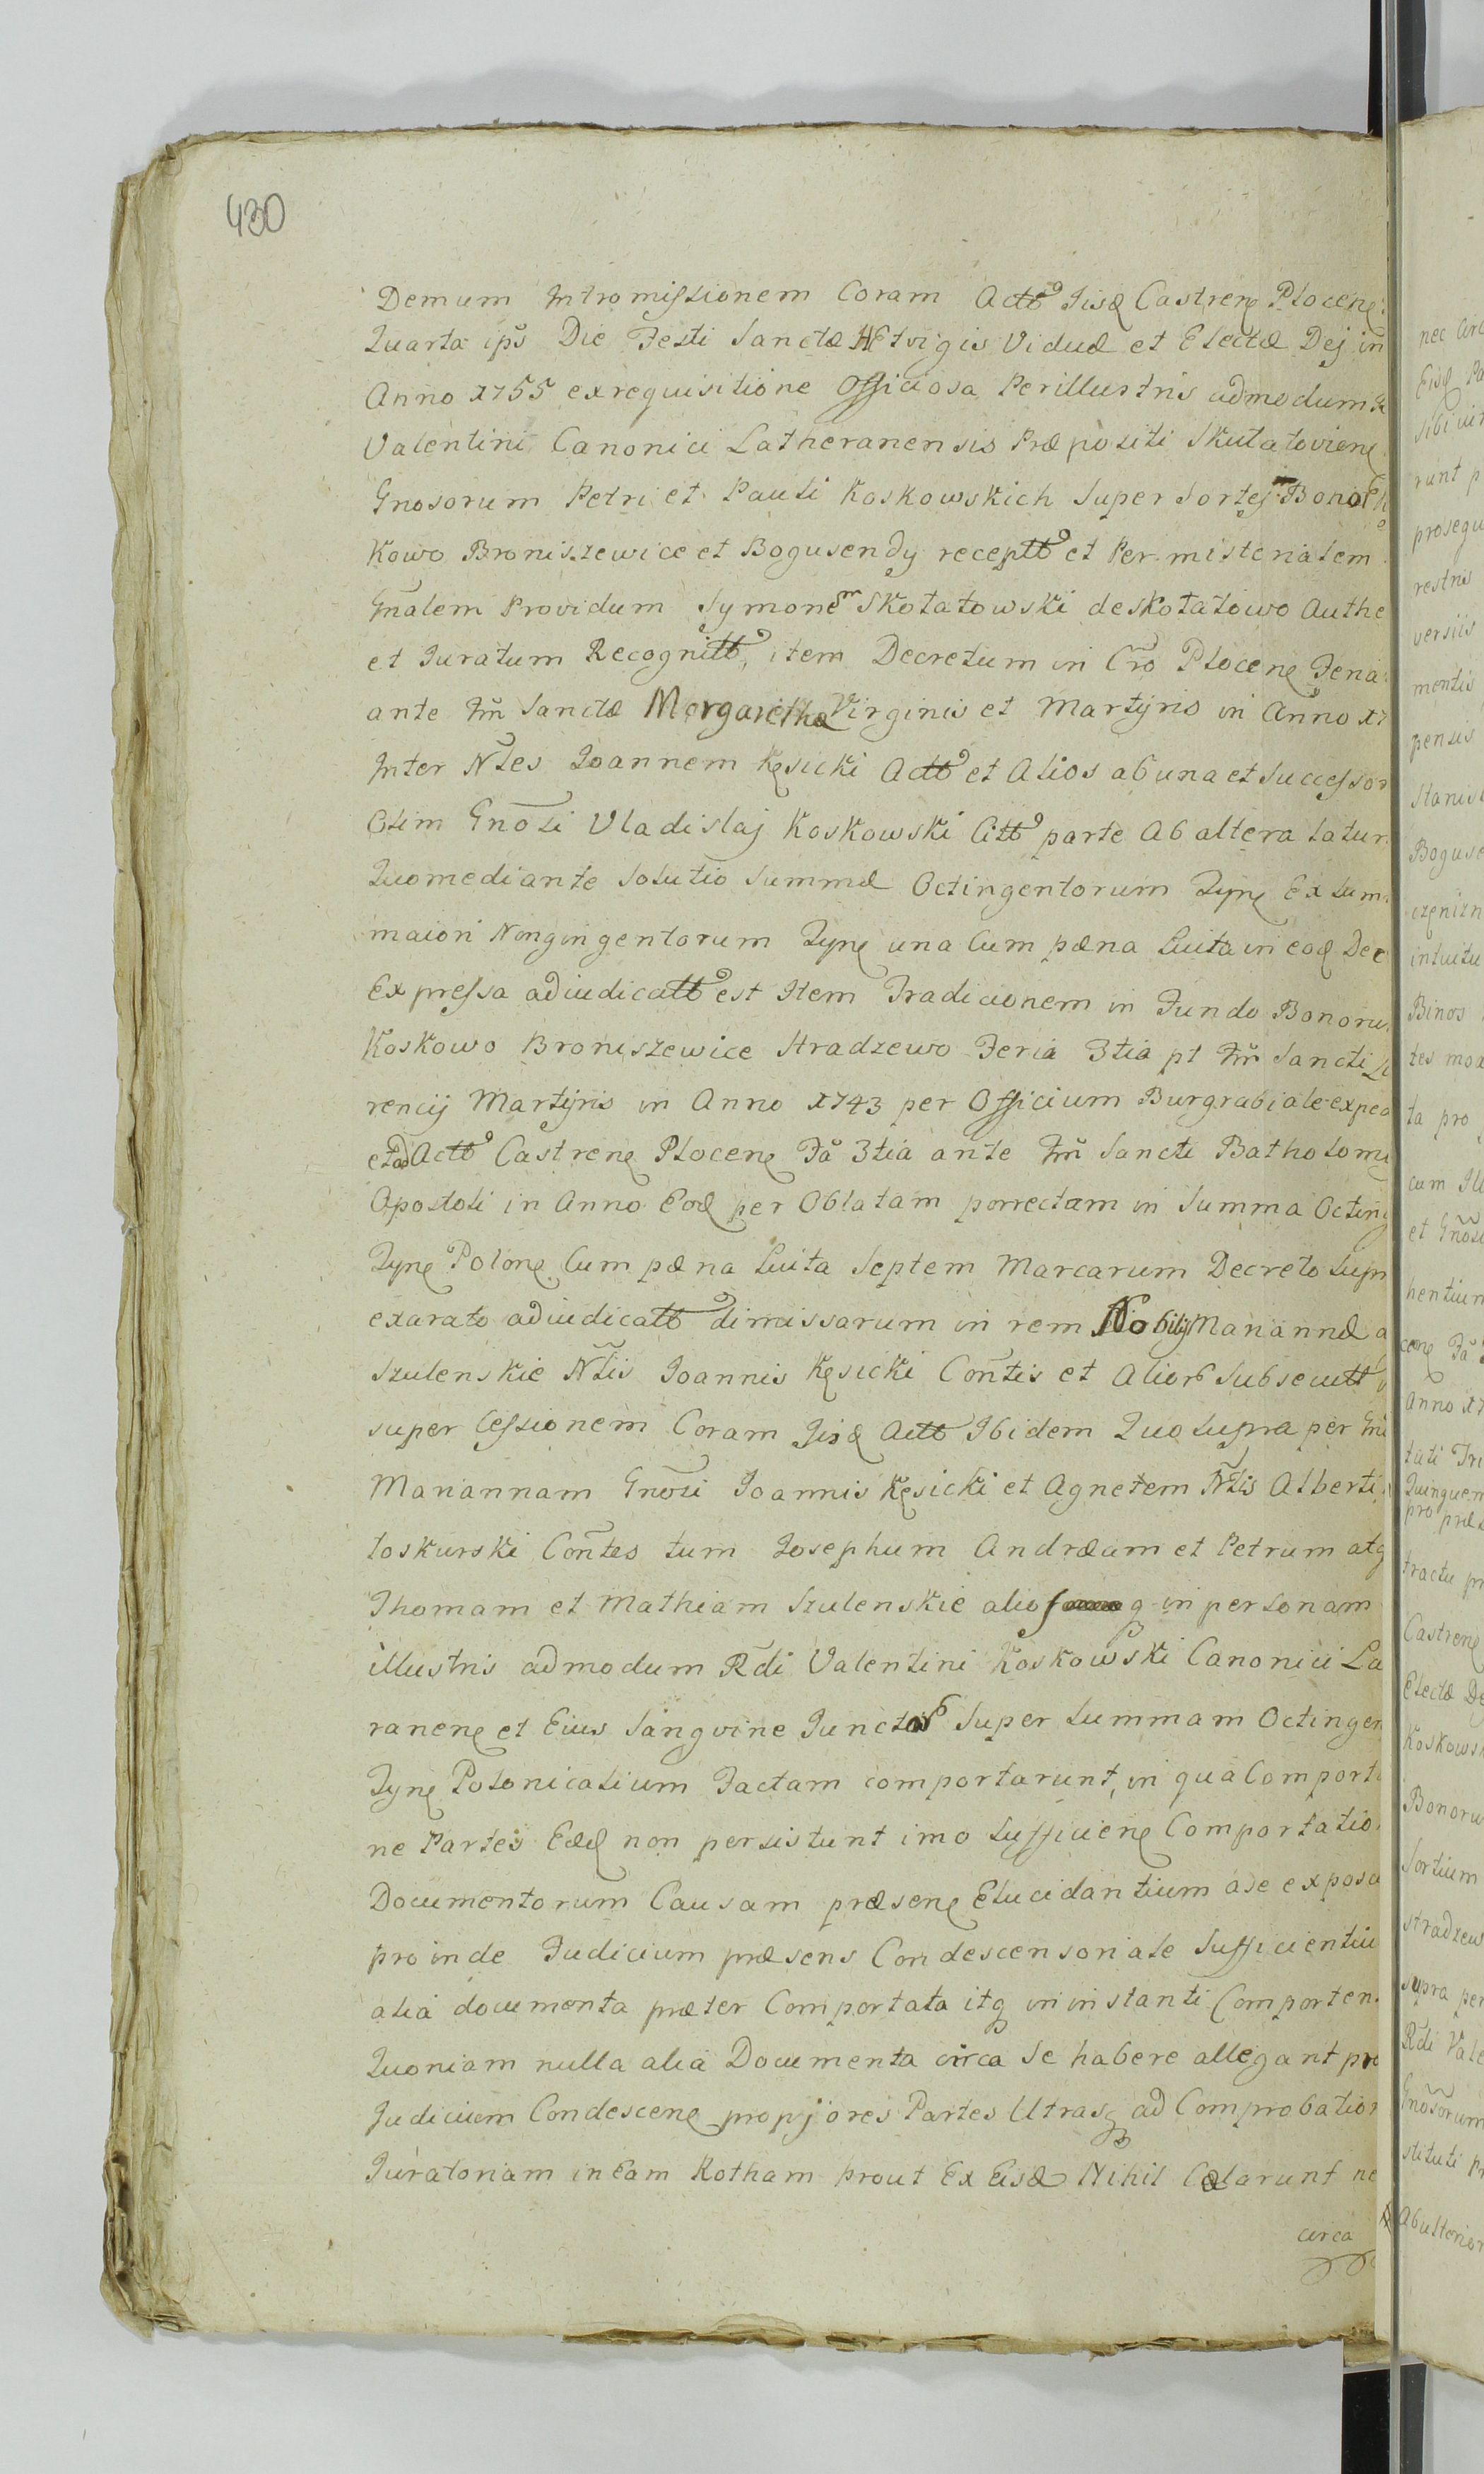 430
Demum Intromissionem Coram Actō Iisd Castren Plocen
Quarta ips̄ Die Festi Sanctæ HEtvigis Viduæ et Electæ Dej in
Anno 1755 ex requisitione Officiosa Perillustris admodum R
Valentini Canonici Latheranensis Præpositi Skułatovien
Gnosorum Petri et Pauli Koskowskich Super Sortes Bonor
Kowo Broniszewice et Bogusendy receptt et Per misterialem
Gn̄alem Providum Symonem Skołatowski de Skołatowo Authe
et Juratum Recognitt, item Decretum in Cr̄o Plocen Feria
ante Fm̄ Sanctæ Margarethæ Virginis et Martyris in Anno 17
Inter Nl̄es Joannem Kęsicki Actt et Alios ab una et Successor
Olim Gnosi Vladislaj Koskowski Citt parte Ab altera latur
Quo mediante Solutio Summæ Octingentorum Tyn Ex sum
maiori Nongingentorum Tyn una Cum pæna Luita in eod Dec
Expressa adiudicatt est Item Tradicionem in Fundo Bonoru
Koskowo Broniszewice Stradzewo Feria 3tia pt Fm̄ Sancti L
rencij Martyris in Anno 1743 per Officium Burgrabiale exped
et ad Actt Castren Plocen Fa 3tia ante Fm̄ Sancti Batholom
Apostoli in Anno Eod per Oblatam porrectam in Summa Octing
Tyn Polon Cum pæna Luita Septem Marcarum Decreto Supr
exarato adiudicatt dimissarum in rem Nobilij Mariannæ a
Szulenskie Nl̄is Joannis Kęsicki Con̄tis et Alior Subsecutt
super Cessionem Coram Iisd Actt Ibidem Quo Supra per Gn
Mariannam Gnosi Joannis Kęsicki et Agnetem Nl̄is Alberti
toskurski Con̄tes tum Josephum Andræam et Petrum atq
Thomam et Mathiam Szulenskie alios q in personam
illustris admodum R̄di Valentini Koskowski Canonici La
ranen et Eius Sangvine Junctor Super Summam Octingen
Tyn Polonicalium Factam comportarunt, in qua Comporta
ne Partes Eæd non persistunt imo Sufficien Comportatio
Documentorum Causam præsen Elucidantium a se expos
proinde Judicium præsens Condescensoriale Sufficientiu
alia documenta præter Comportata itq in instanti Comporten
Quoniam nulla alia Documenta circa Se habere allegant pro
Judicium Condescen propjores Partes Utrasq ad Comprobation
Juratoriam in Eam Rotham prout Ex Eisd Nihil Cælarunt ne
circa
nec circ
Eisd Pa
sibi
runt p
prosequ
restris
versiis
mentis
pensis
Stanis
Boguse
intuitu
Binos
tes mox
ta pro
cum Ill
et Gnosi
hentium
cen Fa
Anno 17
tuti Tri
Quinquen
pro præs
tractu pr
Castren
Electæ De
Koskows
Bonoru
Sortium
Stradzew
supra per
R̄di Vale
Gnosorum
stituti pr
Ab ulterior